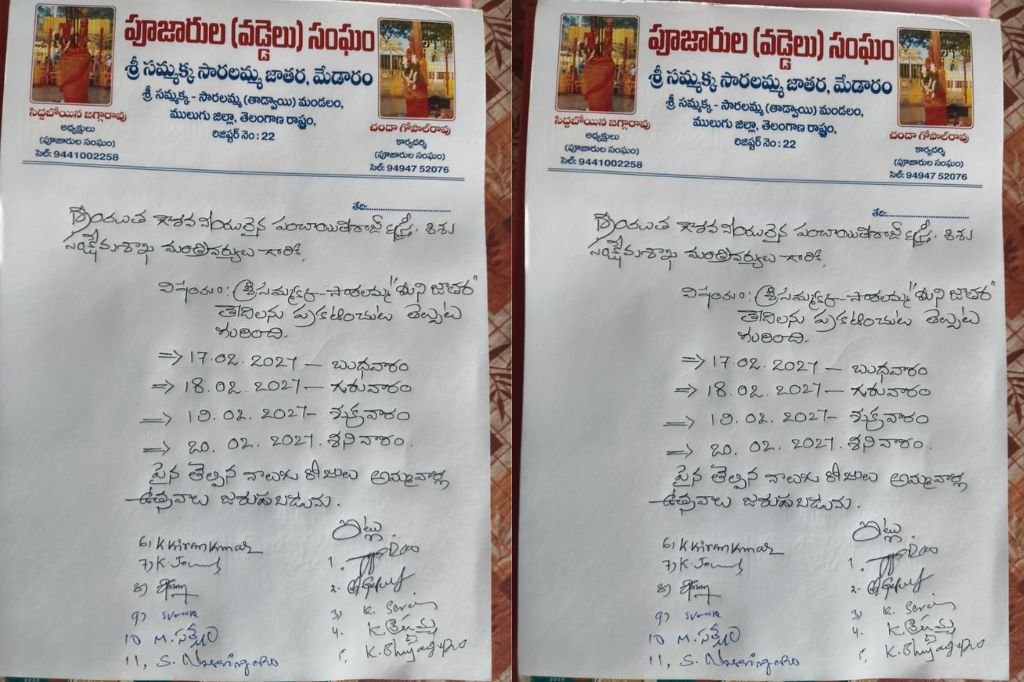 పూజారుల (వడ్డెలు) సంఘం
శ్రీ సమ్మక్క సారలమ్మ జాతర, మేడారం
శ్రీ సమ్మక్క - సారలమ్మ (తాడ్వాయి) మండలం,
ములుగు జిల్లా, తెలంగాణ రాష్ట్రం,
రిజిష్టర్ నెం : 22
సిద్దబోయిన జగ్గారావు
అధ్యక్షులు
(పూజారుల సంఘం)
సెల్: 9441002258
చందా గోపాల్‌రావు
కార్యదర్శి
(పూజారుల సంఘం)
సెల్: 94947 52076
తేది:
పంచాయితీరాజ్ స్త్రీ, శిశు
సంక్షేమశాఖ మంత్రివర్యులు గారికి,
విషయం: శ్రీ సమ్మక్క - సారలమ్మ "మిని జాతర"
తేదిలను ప్రకటించుట తెల్పుట
గురించి.
⇒ 17.02.2027 - బుధవారం
⇒ 18.02.2027 - గురువారం
⇒ 19.02.2027 - శుక్రవారం
⇒ 20.02.2027. శనివారం.
పైన తెల్పిన నాలుగు రోజులు అమ్మవార్ల
ఉత్సవాలు జరుపబడును.
ఇట్లు
6) K Kiran Kumar
7) K.
8)
9)
10 M.
11, S.
1.
2.
3) K.
4. K
5, K.
పూజారుల (వడ్డెలు) సంఘం
శ్రీ సమ్మక్క సారలమ్మ జాతర, మేడారం
శ్రీ సమ్మక్క - సారలమ్మ (తాడ్వాయి) మండలం,
ములుగు జిల్లా, తెలంగాణ రాష్ట్రం,
రిజిష్టర్ నెం : 22
సిద్దబోయిన జగ్గారావు
అధ్యక్షులు
(పూజారుల సంఘం)
సెల్: 9441002258
చందా గోపాల్‌రావు
కార్యదర్శి
(పూజారుల సంఘం)
సెల్: 94947 52076
తేది:
పంచాయితీరాజ్ స్త్రీ, శిశు
సంక్షేమశాఖ మంత్రివర్యులు గారికి,
విషయం: శ్రీ సమ్మక్క - సారలమ్మ "మిని జాతర"
తేదిలను ప్రకటించుట తెల్పుట
గురించి.
⇒ 17.02.2027 - బుధవారం
⇒ 18.02.2027 - గురువారం
⇒ 19.02.2027 - శుక్రవారం
⇒ 20.02.2027. శనివారం.
పైన తెల్పిన నాలుగు రోజులు అమ్మవార్ల
ఉత్సవాలు జరుపబడును.
ఇట్లు
6) K Kiran Kumar
7) K.
8)
9)
10 M.
11, S.
1.
2.
3) K.
4. K
5, K.